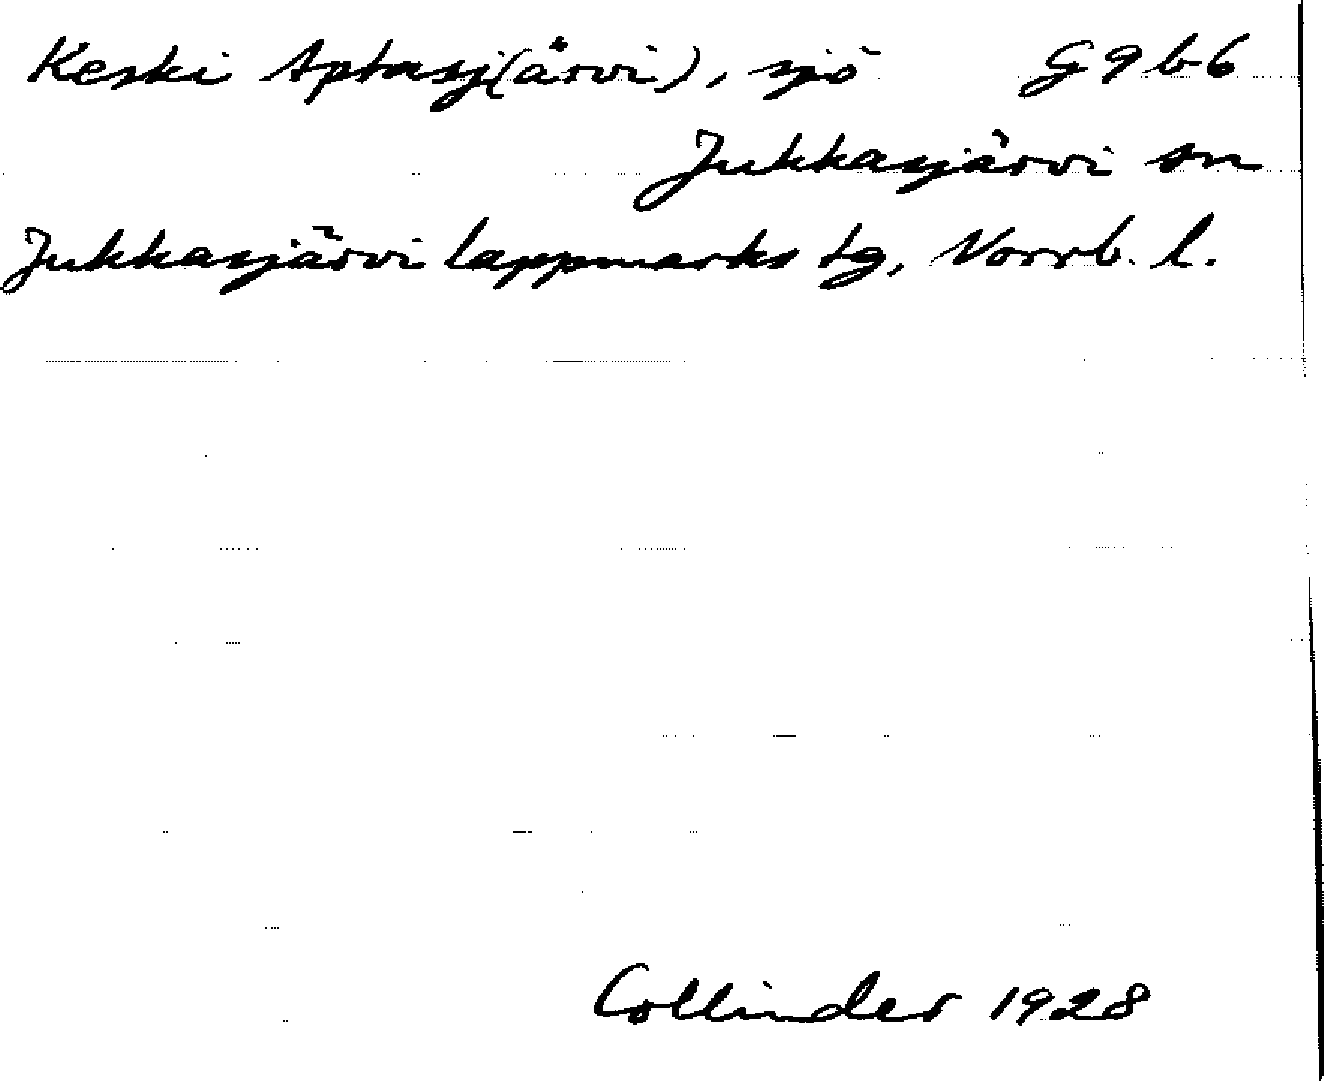 Keski Aptasj(ärvi), sjö G9b6
Jukkasjärvi sn
Jukkasjärvi lappmarks tg, Norrb. l.
Collinder 1928